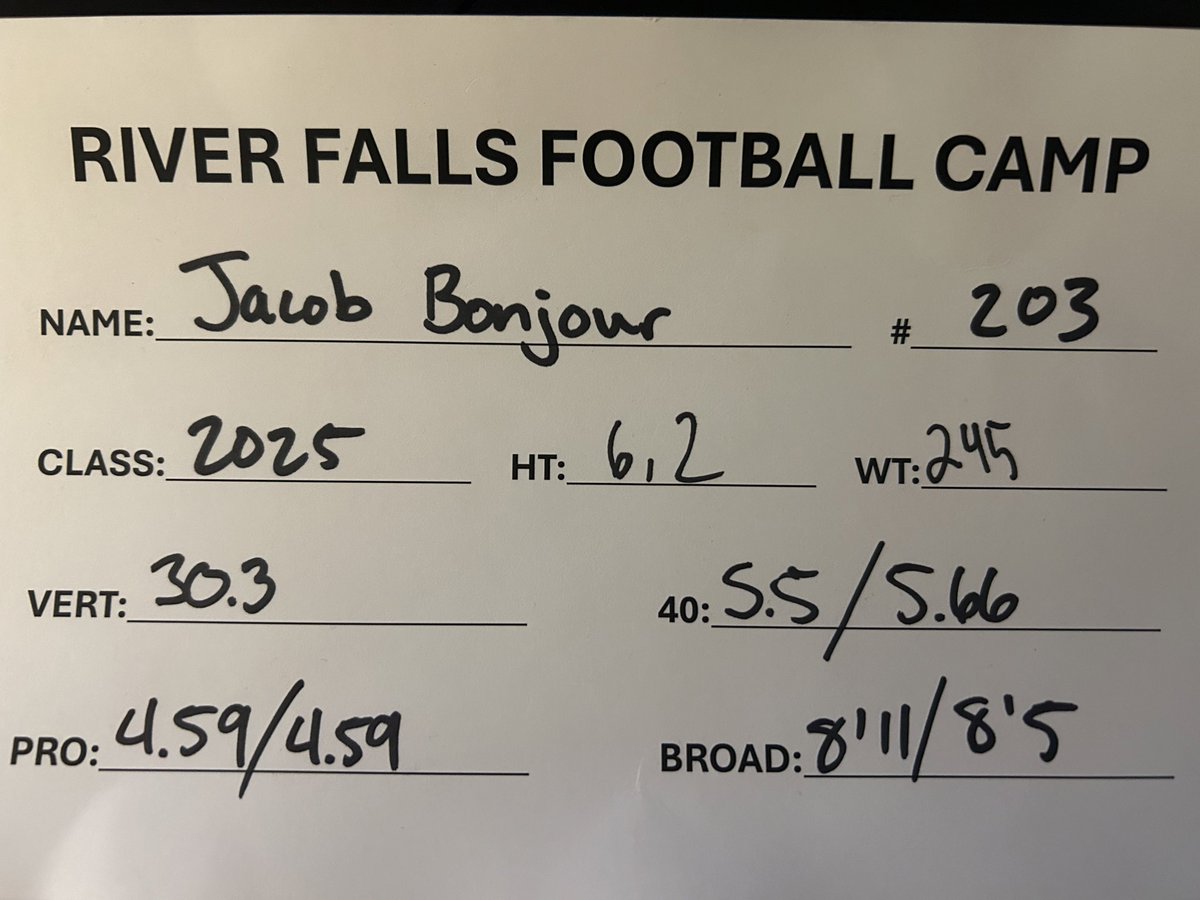 RIVER FALLS FOOTBALL CAMP
NAME: Jacob Bonjour # 203
CLASS: 2025 HT: 6,2 WT: 245
VERT: 30.3 40: 5.5/5.66
PRO: 4.59/4.59 BROAD: 8'11/8'5